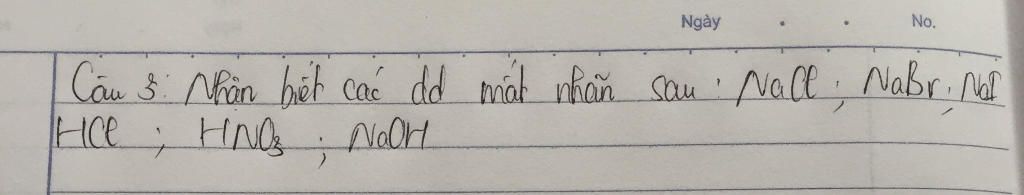 Ngày . . No.
Câu 3: Nhận biết các dd mất nhãn sau: NaCl; NaBr; NaI
HCl ; HNO₃ ; NaOH